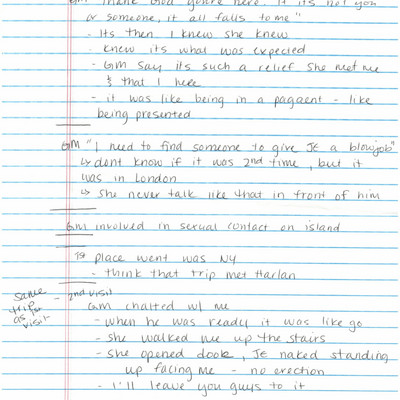 GM "Thank God you're here. If its not you
or someone, it all falls to me"
- Its then I knew she knew
- knew its what was expected
- GM say its such a relief she met me
& that I here
- it was like being in a pagaent - like
being presented
GM "I need to find someone to give JE a blowjob"
↳ dont know if it was 2nd time, but it
was in London
↳ she never talk like that in front of him
GM involved in sexual contact on island
1st place went was NY
- think that trip met Harlan
same trip as visit
- 2nd visit
GM chatted w/ me
- when he was ready it was like go
- she walked me up the stairs
- she opened door, JE naked standing
up facing me - no erection
- I'll leave you guys to it